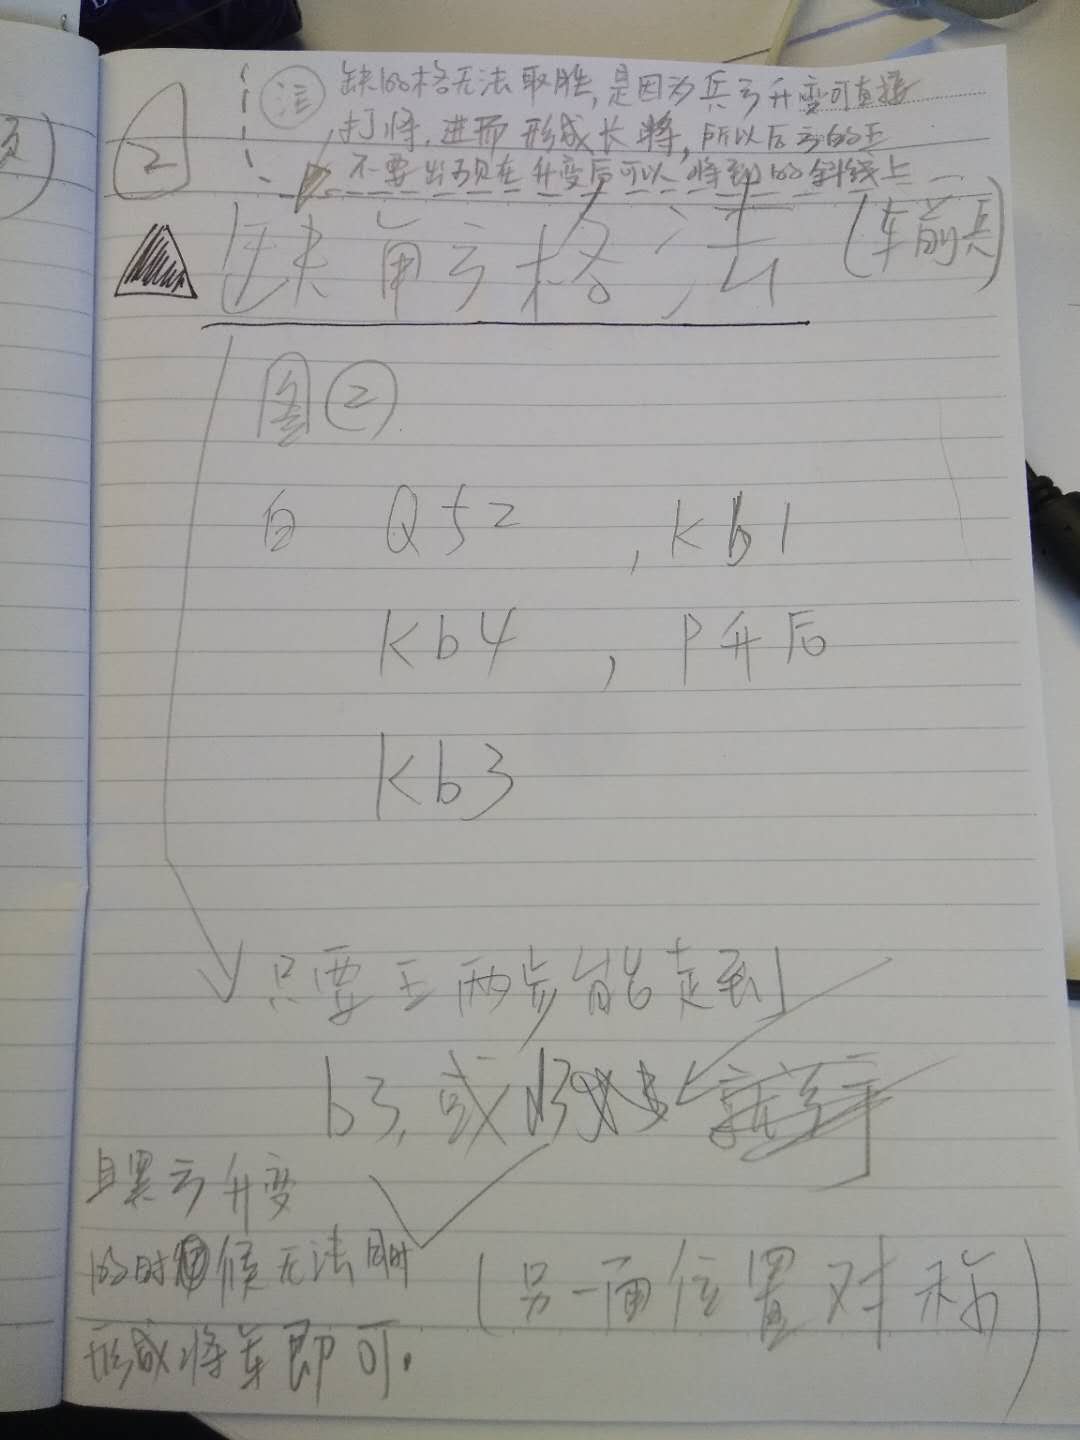 2
注 缺的格无法取胜,是因为兵方升变可直接
打将,进而形成长将,所以后方的王
不要出现在升变后可以将到的斜线上
缺角方格法 (车前兵)
图②
白 Q f2 , K b1
K b4 , P升后
K b3
只要王两步能走到
b3,或
且黑方升变
的时候无法同时
形成将军即可.
(另一面位置对称)